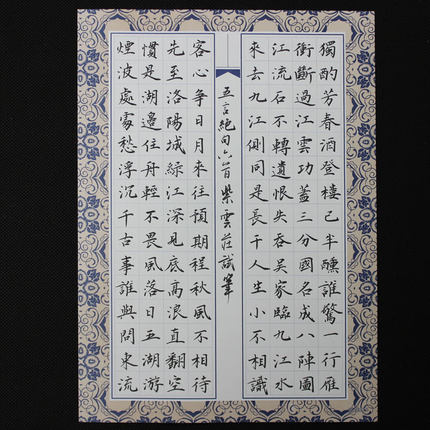 獨酌芳春酒登樓已半醺誰驚一行雁
衝斷過江雲功蓋三分國名成八陣圖
江流石不轉遺恨失吞吳家臨九江水
來去九江側同是長干人生小不相識
五言絕句六首 紫雲莊試筆
客心爭日月來往預期程秋風不相待
先至洛陽城綠江深見底高浪直翻空
慣是湖邊住舟輕不畏風落日五湖游
煙波處處愁浮沉千古事誰與問東流